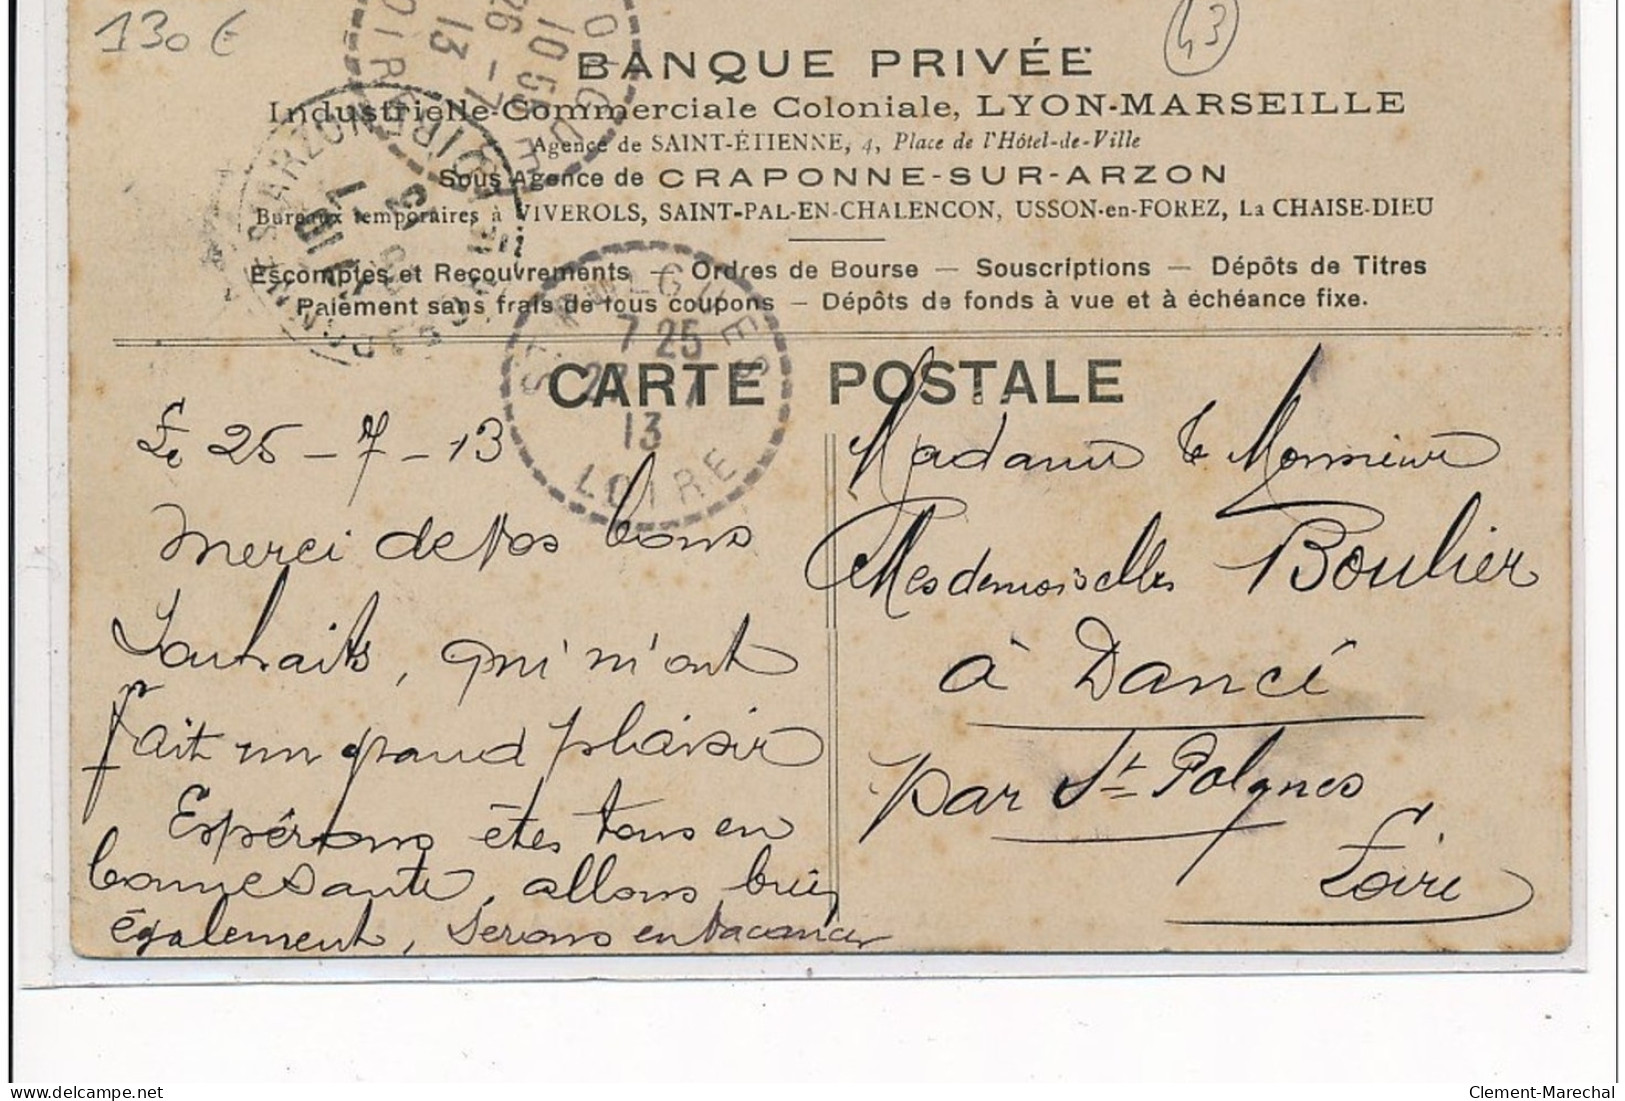 130 €
43
BANQUE PRIVÉE
Industrielle-Commerciale Coloniale, LYON-MARSEILLE
Agence de SAINT-ÉTIENNE, 4, Place de l'Hôtel-de-Ville
Sous Agence de CRAPONNE-SUR-ARZON
Bureaux temporaires à VIVEROLS, SAINT-PAL-EN-CHALENCON, USSON-en-FOREZ, La CHAISE-DIEU
Escomptes et Recouvrements — Ordres de Bourse — Souscriptions — Dépôts de Titres
Paiement sans frais de tous coupons — Dépôts de fonds à vue et à échéance fixe.
CARTE POSTALE
7 25
27 7
13
LOIRE
Le 25-7-13
merci de vos bons
souhaits, qui m'ont
fait un grand plaisir
Espérons êtes tous en
bonne santé, allons bien
également, serons en vacances
Madame & Monsieur
Mesdemoiselles Boulier
à Dancé
par St Polgnes
Loire
Clement-Marechal